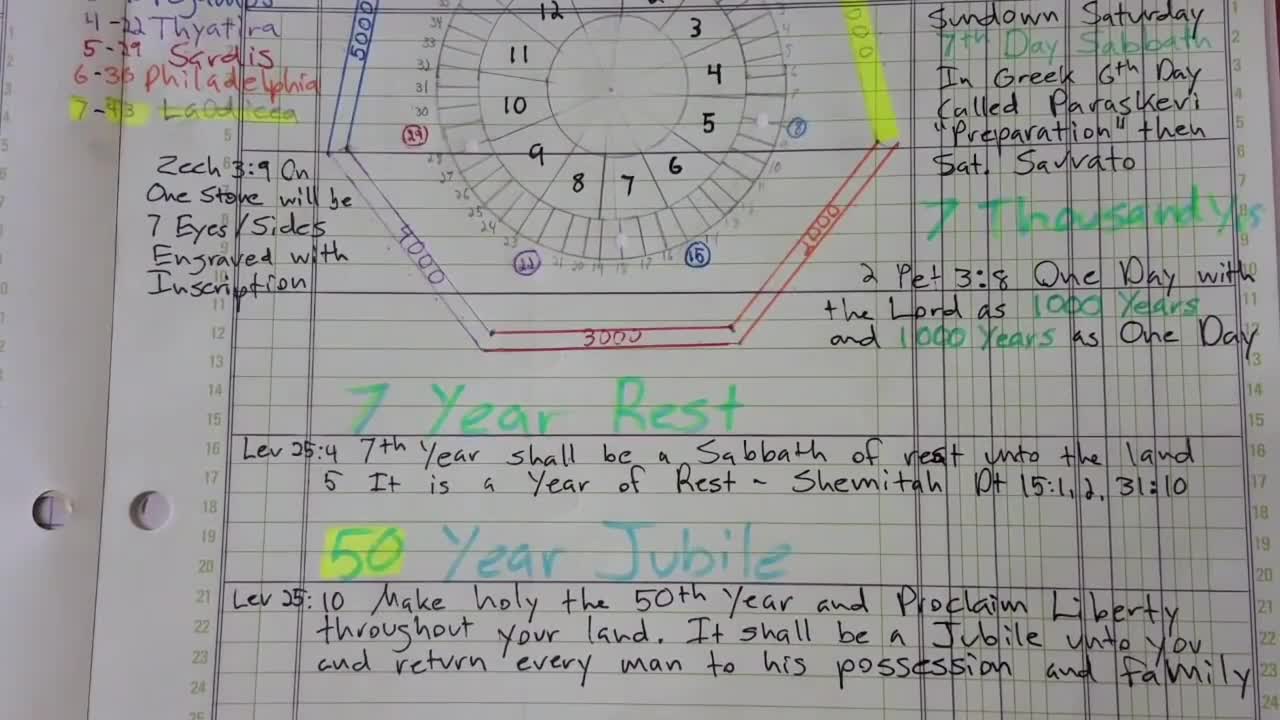 4-22 Thyatira
5-29 Sardis
6-36 Philadelphia
7-43 LaOdicea
Zech 3:9 On
One Stone will be
7 Eyes/Sides
Engraved with
Inscription
5000
12
3
11
4
10
5
9
6
8
7
34
33
32
31
30
29
27
26
25
24
23
22
21
20
19
18
17
16
15
10
8
4000
3000
2000
000
Sundown Saturday
7th Day Sabbath
In Greek 6th Day
Called Paraskevi
"Preparation" then
Sat. Savvato
7 Thousand Yrs
2 Pet 3:8 One Day with
the Lord as 1000 Years
and 1000 Years as One Day
7 Year Rest
Lev 25:4 7th Year shall be a Sabbath of rest unto the land
5 It is a Year of Rest - Shemitah Dt 15:1,2, 31:10
50 Year Jubile
Lev 25:10 Make holy the 50th Year and Proclaim Liberty
throughout your land. It shall be a Jubile unto you
and return every man to his possession and family